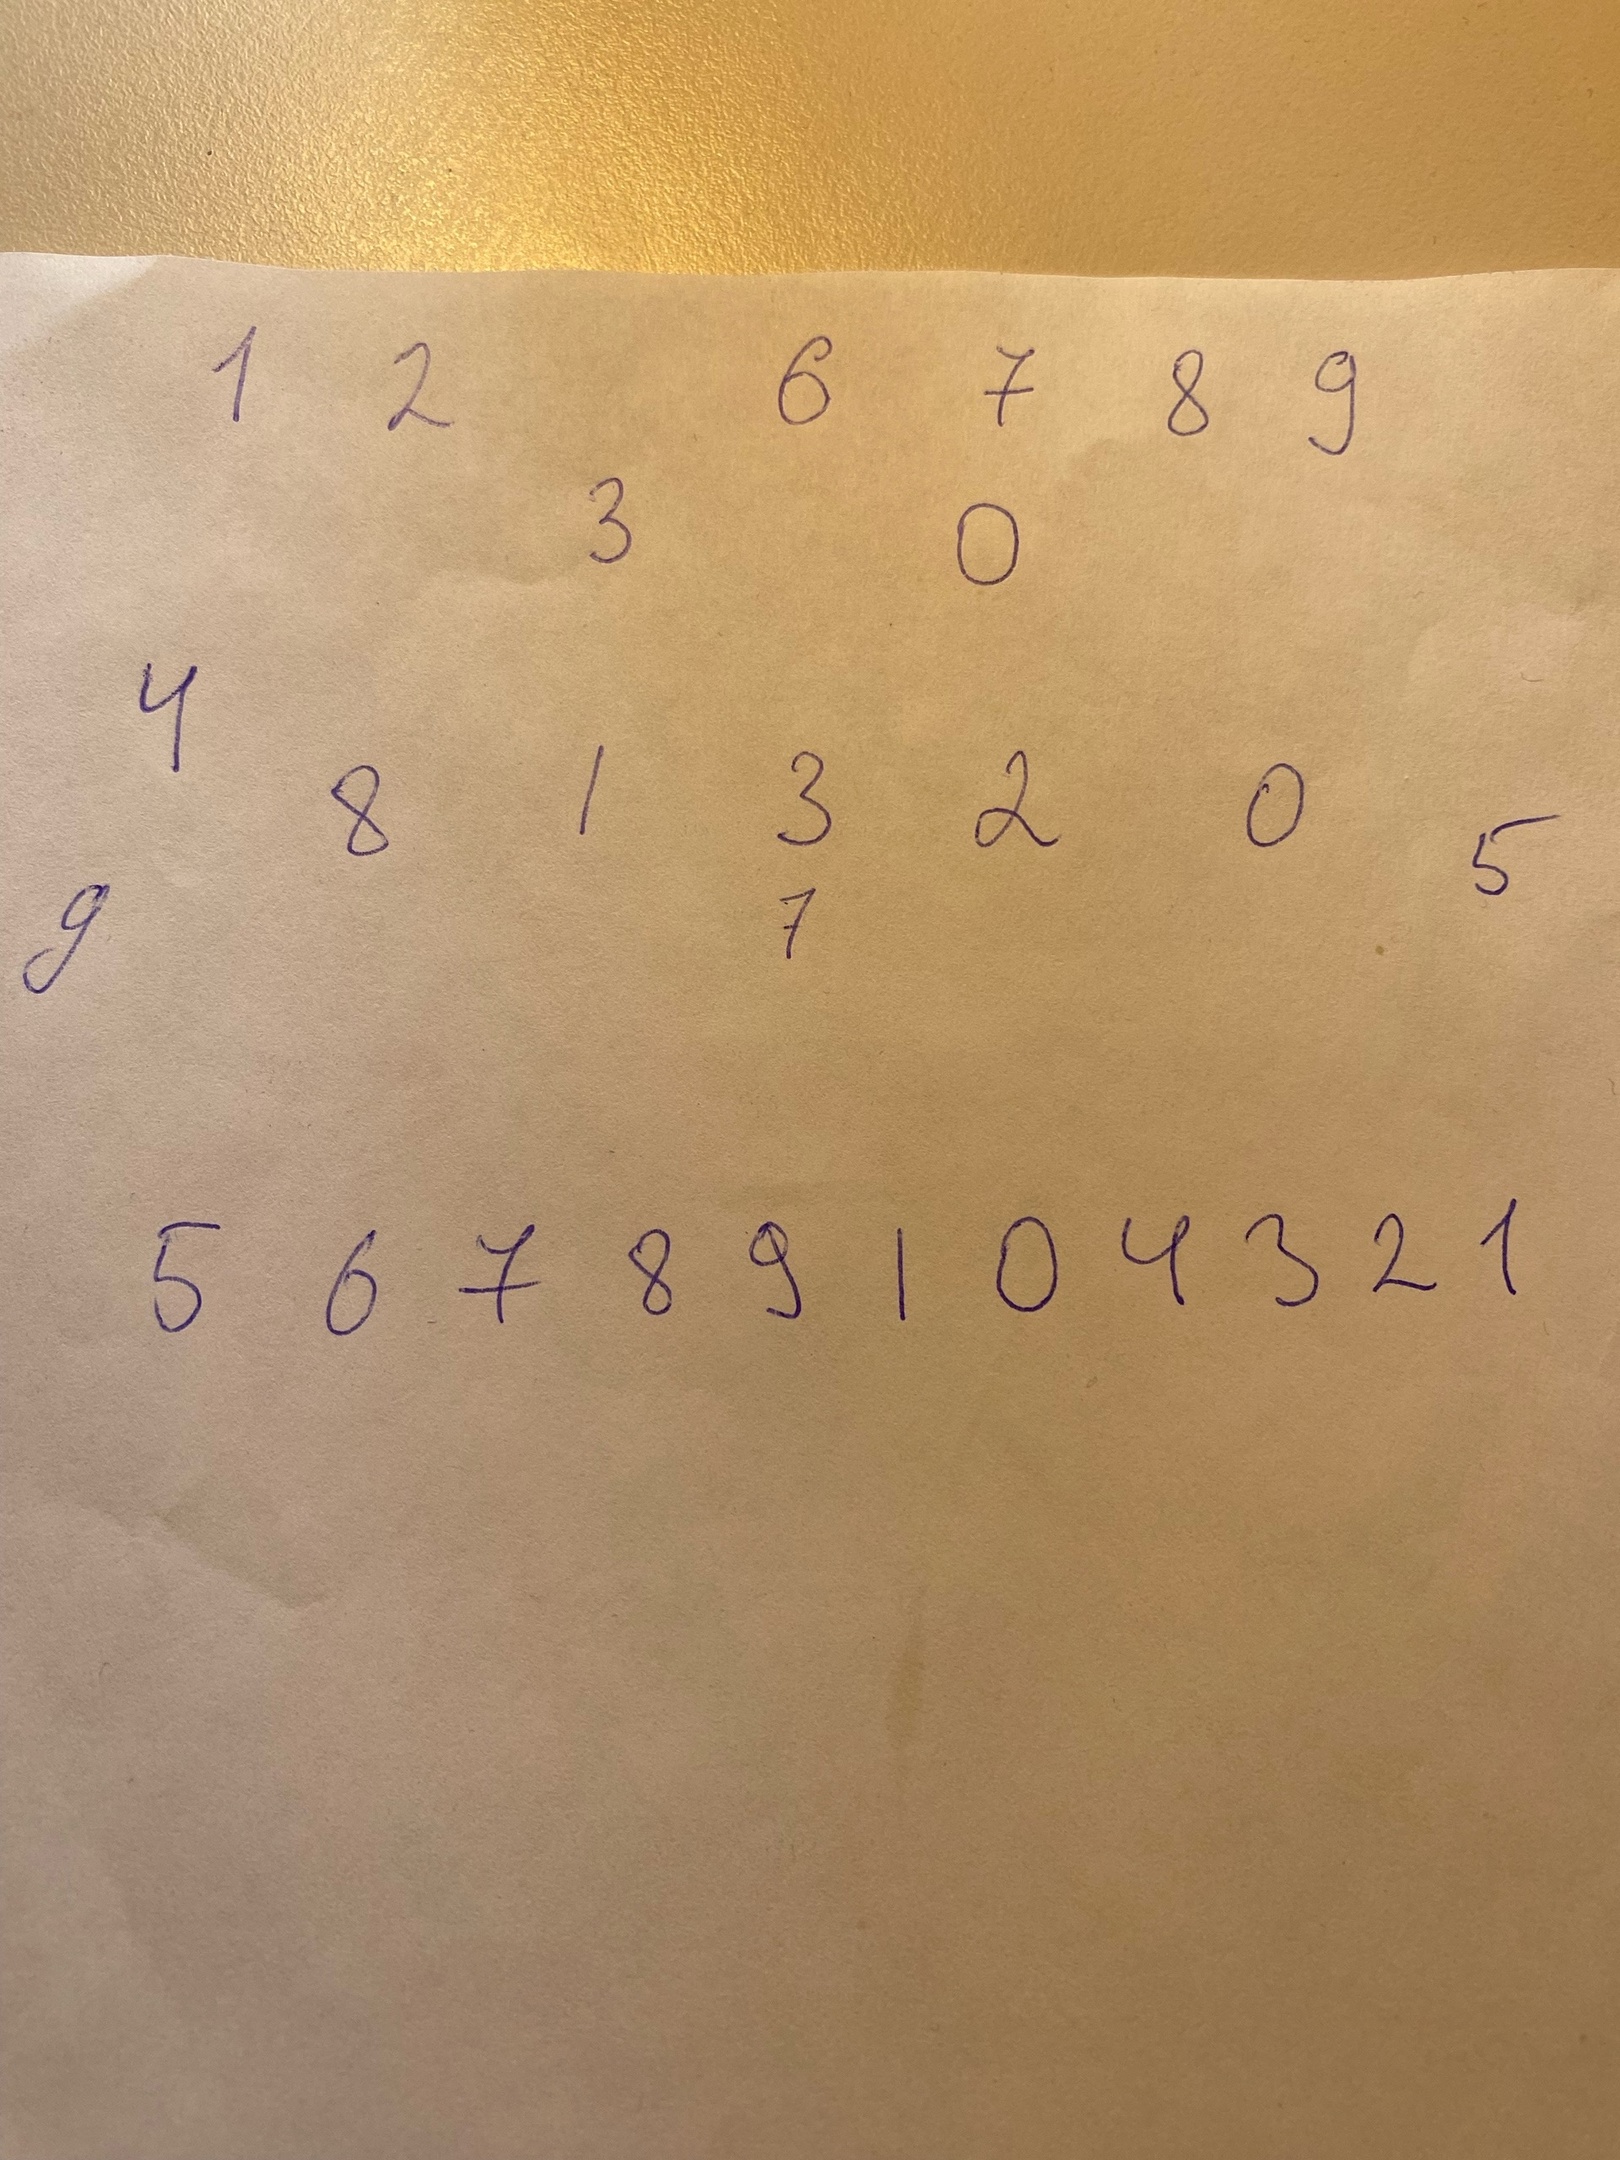 1 2 6 7 8 9
3 0
4
8 1 3 2 0 5
9 7
5 6 7 8 9 1 0 4 3 2 1